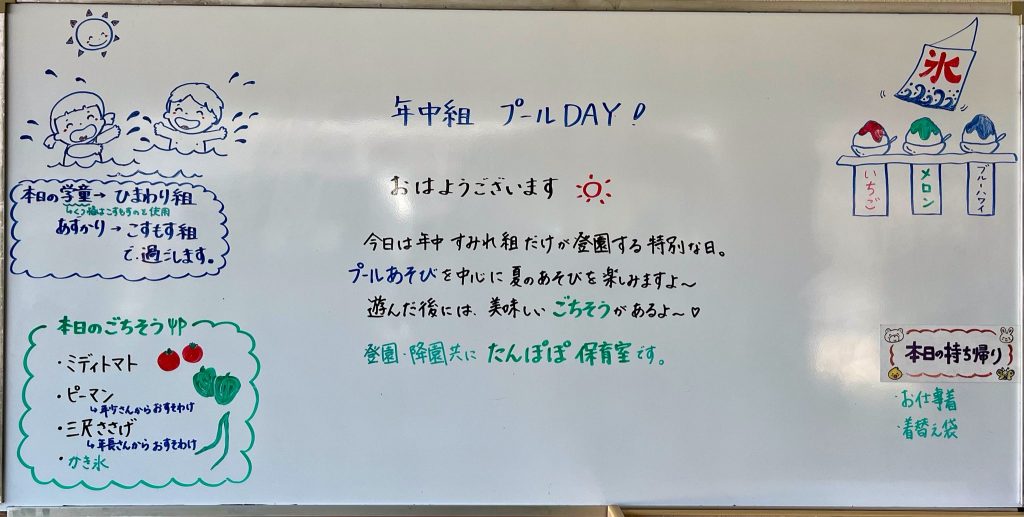 年中組 プールDAY!
おはようございます
今日は年中 すみれ組 だけが登園する特別な日。
プールあそびを中心に夏のあそびを楽しみますよ〜
遊んだ後には、美味しいごちそうがあるよ〜♡
登園・降園共に たんぽぽ 保育室です。
本日の学童→ひまわり組
あずかり→こすもす組
で過ごします。
本日のごちそう
・ミディトマト
・ピーマン
・三尺ささげ
↳年長さんからおすそわけ
・かき氷
氷
いちご
メロン
ブルーハワイ
本日の持ち帰り
・お仕事着
・着替え袋